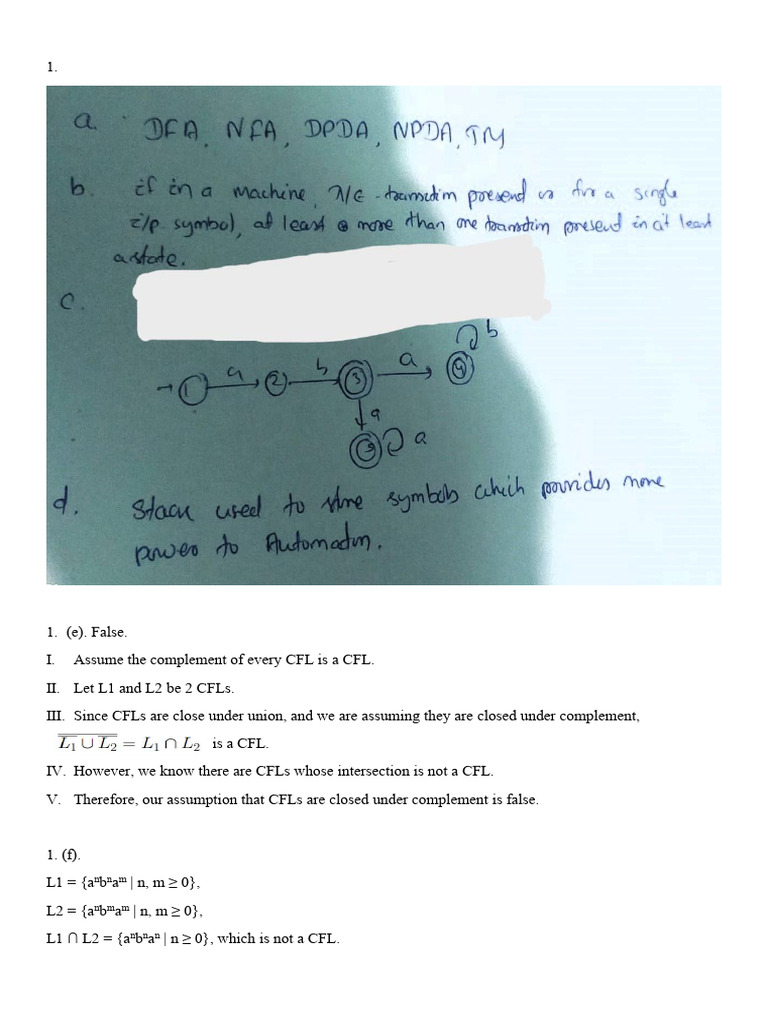 1.
a. DFA, NFA, DPDA, NPDA, TM
b. if in a machine, λ/ε - transition present or for a single
i/p symbol, at least more than one transition present in at least
a state.
c.
→ 1 a 2 b 3 a 4 b
a
a
d. Stack used to store symbols which provides more
power to Automaton.
1. (e). False.
I. Assume the complement of every CFL is a CFL.
II. Let L1 and L2 be 2 CFLs.
III. Since CFLs are close under union, and we are assuming they are closed under complement,
$\overline{\overline{L_1} \cup \overline{L_2}} = L_1 \cap L_2$ is a CFL.
IV. However, we know there are CFLs whose intersection is not a CFL.
V. Therefore, our assumption that CFLs are closed under complement is false.
1. (f).
L1 = {aⁿbⁿaᵐ | n, m ≥ 0},
L2 = {aⁿbᵐaᵐ | n, m ≥ 0},
L1 ∩ L2 = {aⁿbⁿaⁿ | n ≥ 0}, which is not a CFL.